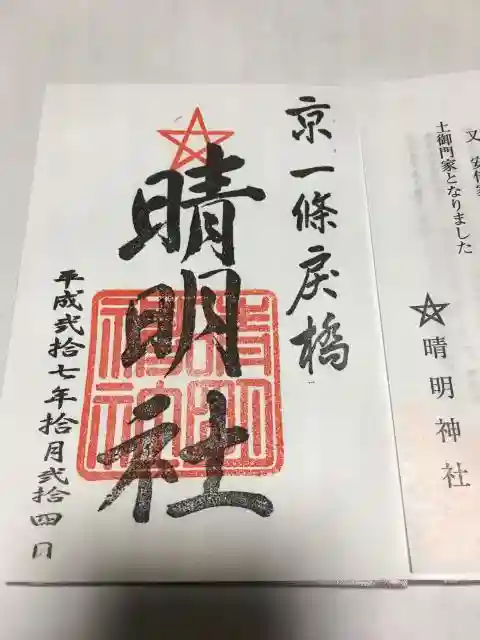 京一條戻橋
晴明社
晴明神社
平成弐拾七年拾月弐拾四日
土御門家となりました
晴明神社